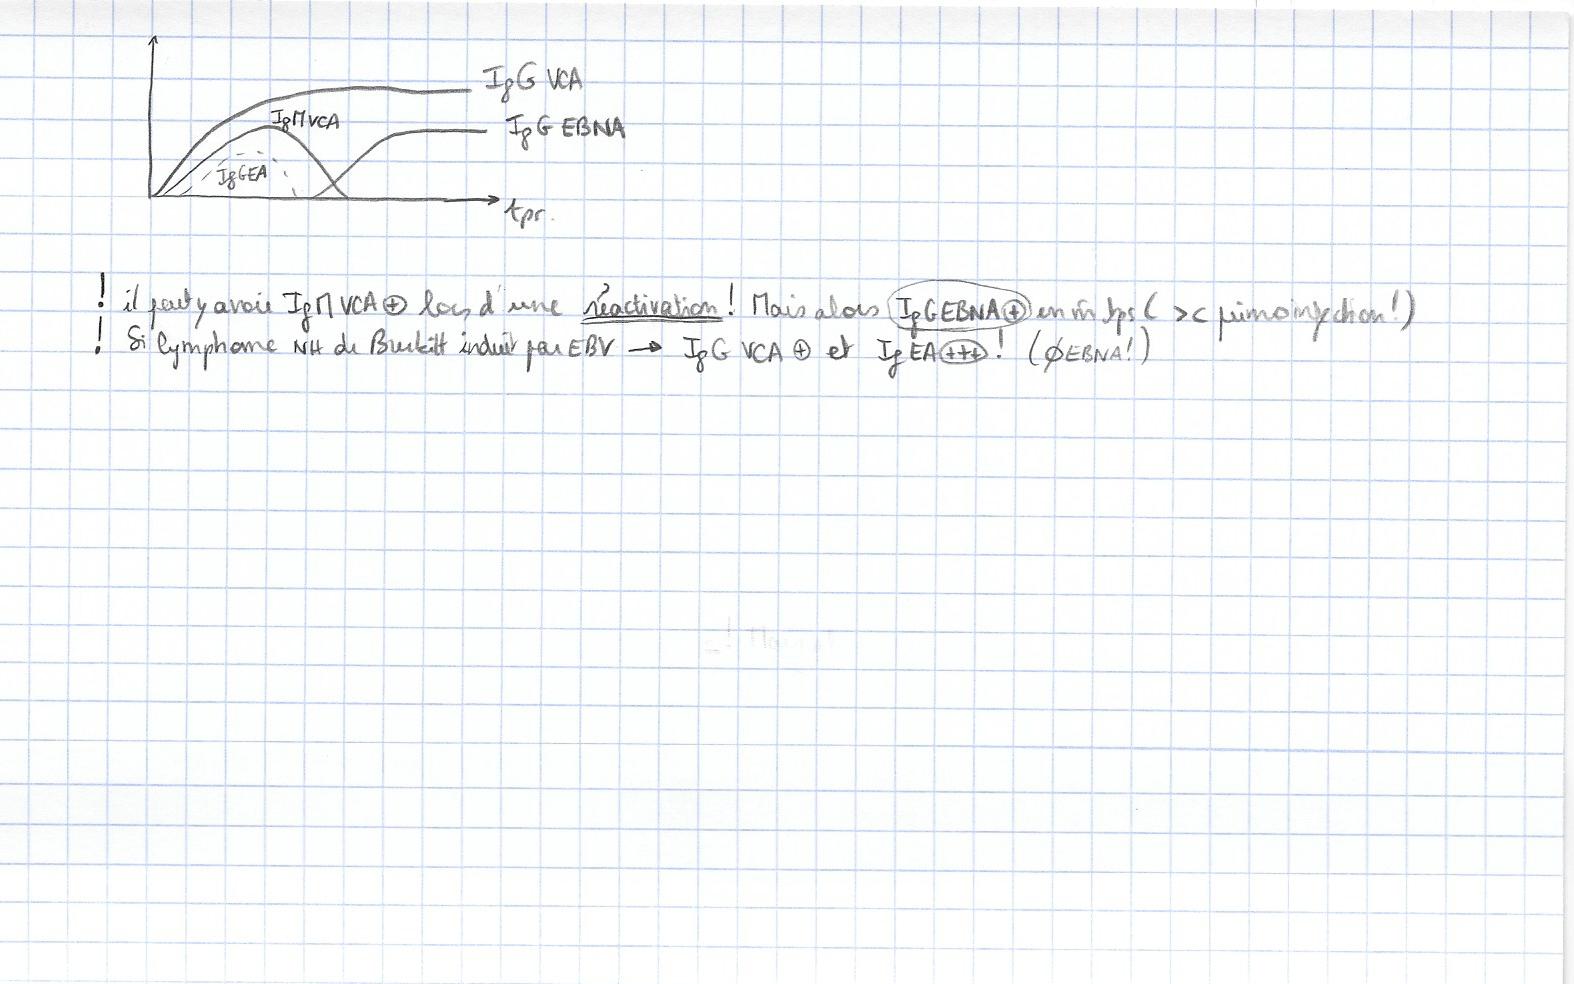 IgG VCA
IgM VCA
IgG EBNA
IgG EA
tps.
! il peut y avoir IgM VCA ⊕ lors d'une réactivation ! Mais alors IgG EBNA ⊕ en m̂ tps ( >< primoinfection !)
! Si lymphome NH de Burkitt induit par EBV → IgG VCA ⊕ et Ig EA +++ ! (∅ EBNA !)